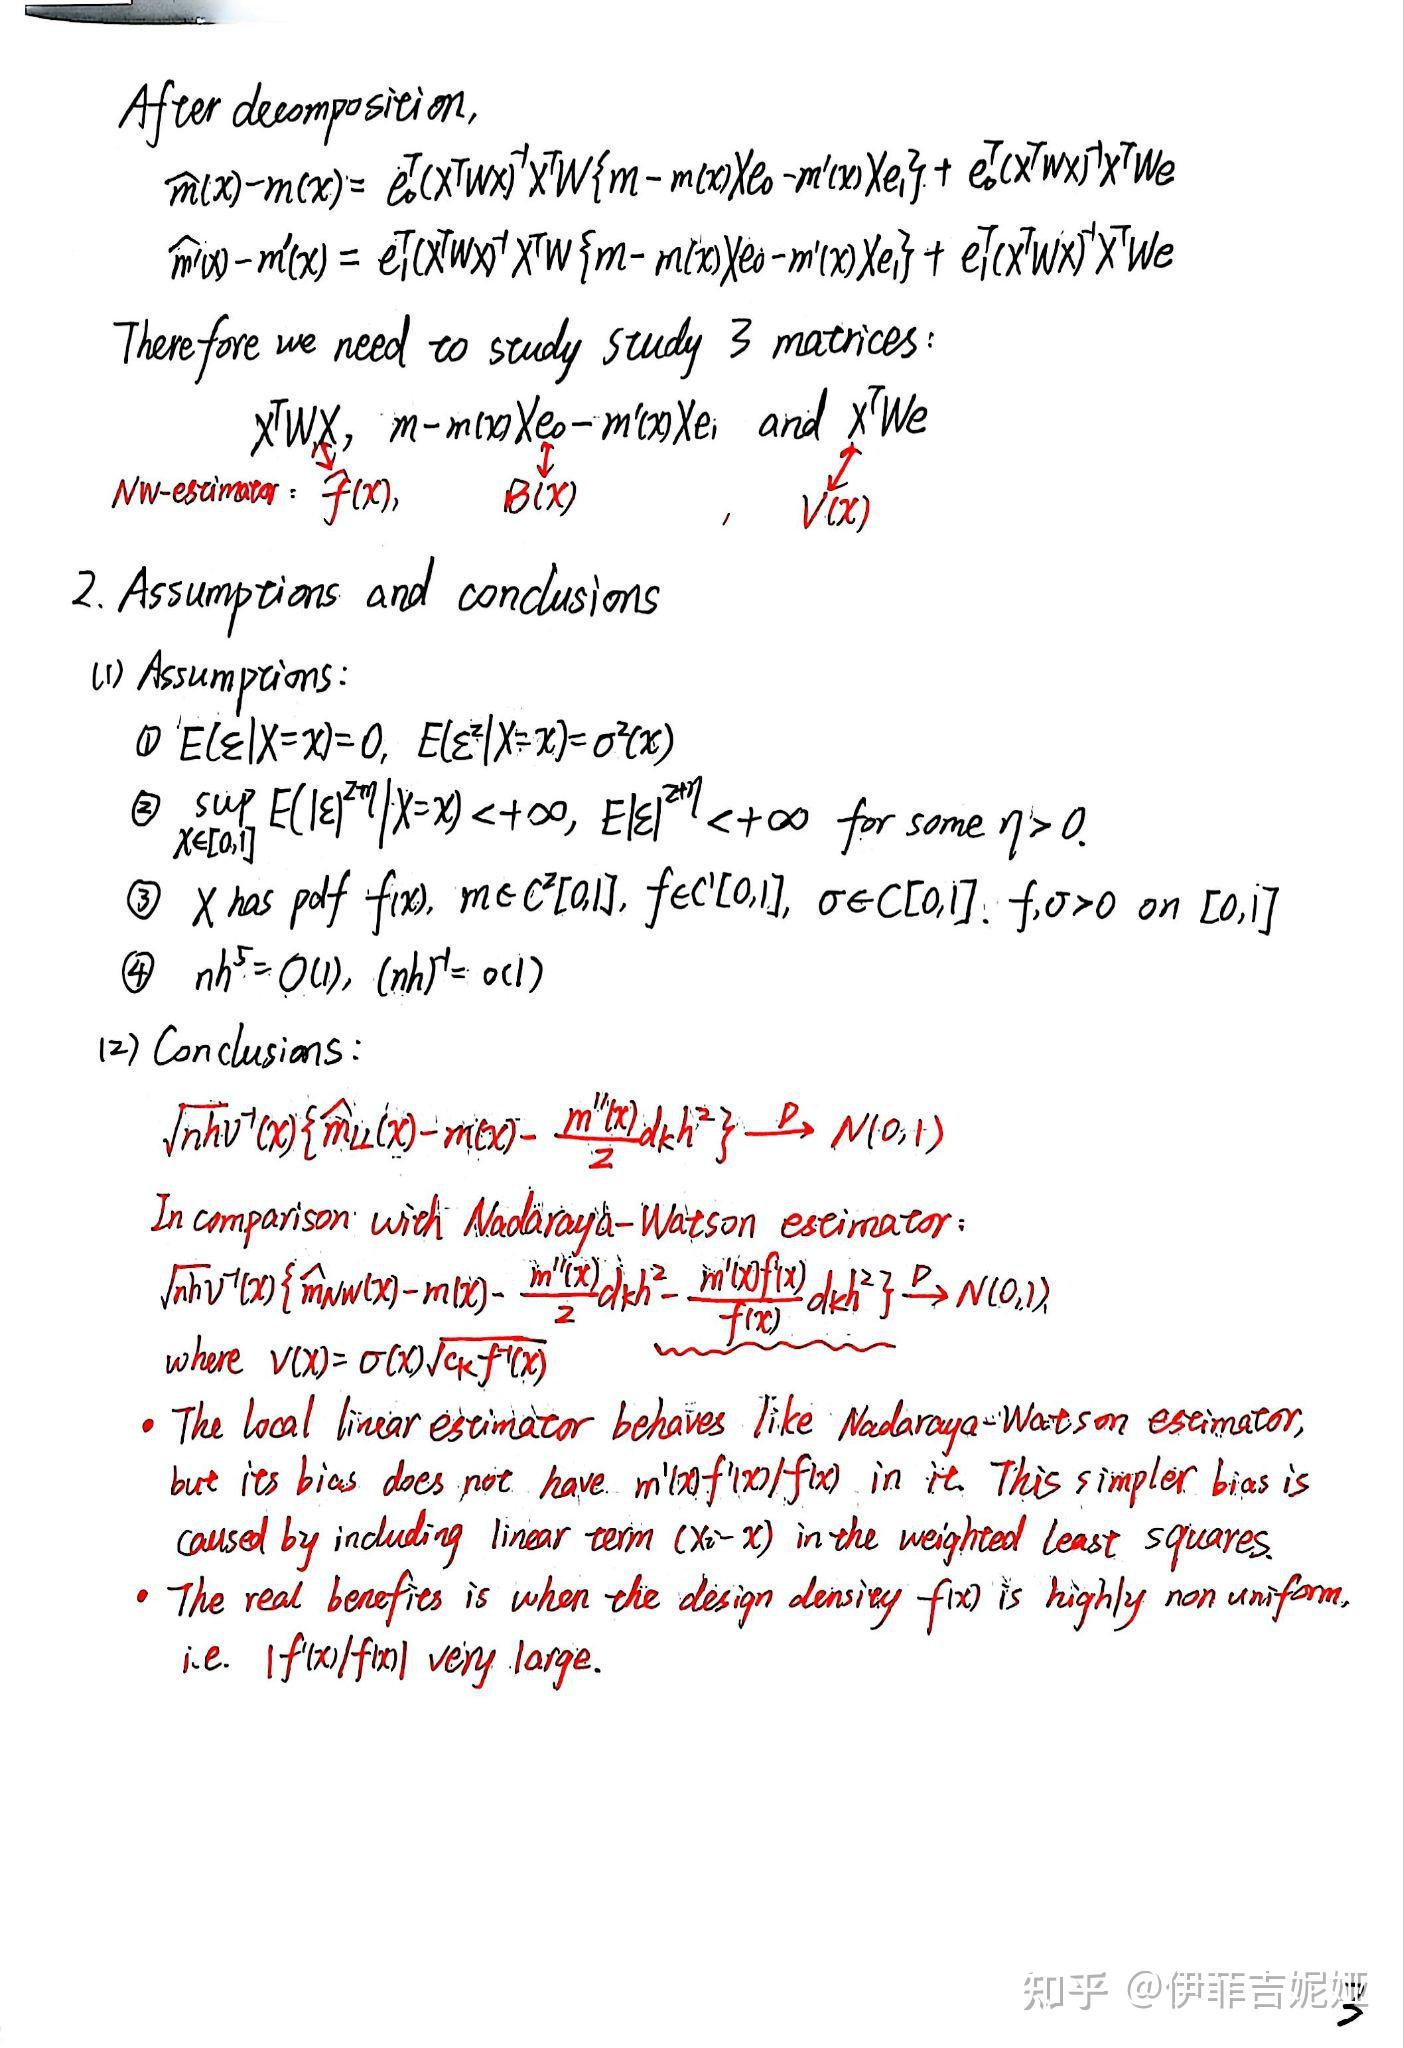 After decomposition,
m̂(x)-m(x) = e₀ᵀ(XᵀWX)⁻¹XᵀW{m-m(x)Xe₀-m'(x)Xe₁} + e₀ᵀ(XᵀWX)⁻¹XᵀWe
m̂'(x)-m'(x) = e₁ᵀ(XᵀWX)⁻¹XᵀW{m-m(x)Xe₀-m'(x)Xe₁} + e₁ᵀ(XᵀWX)⁻¹XᵀWe
Therefore we need to study study 3 matrices:
XᵀWX, m-m(x)Xe₀-m'(x)Xe₁ and XᵀWe
NW-estimator: f̂(x), B(x) , V(x)
2. Assumptions and conclusions
(1) Assumptions:
① E(ε|X=x)=0, E(ε²|X=x)=σ²(x)
② sup x∈[0,1] E(|ε|²⁺ᶯ|X=x)<+∞, E|ε|²⁺ᶯ<+∞ for some η>0.
③ X has pdf f(x), m∈C²[0,1], f∈C'[0,1], σ∈C[0,1], f,σ>0 on [0,1]
④ nh⁵=O(1), (nh)⁻¹=o(1)
(2) Conclusions:
√nh v⁻¹(x){m̂LL(x)-m(x)- m''(x)/2 dₖh²} →ᴰ N(0,1)
In comparison with Nadaraya-Watson estimator:
√nh v⁻¹(x){m̂NW(x)-m(x)- m''(x)/2 dₖh² - m'(x)f'(x)/f(x) dₖh²} →ᴰ N(0,1),
where v(x)=σ(x)√cₖf⁻¹(x)
• The local linear estimator behaves like Nadaraya-Watson estimator,
but its bias does not have m'(x)f'(x)/f(x) in it. This simpler bias is
caused by including linear term (Xi-x) in the weighted least squares.
• The real benefits is when the design density f(x) is highly non uniform,
i.e. |f'(x)/f(x)| very large.
知乎 @伊菲吉妮娅